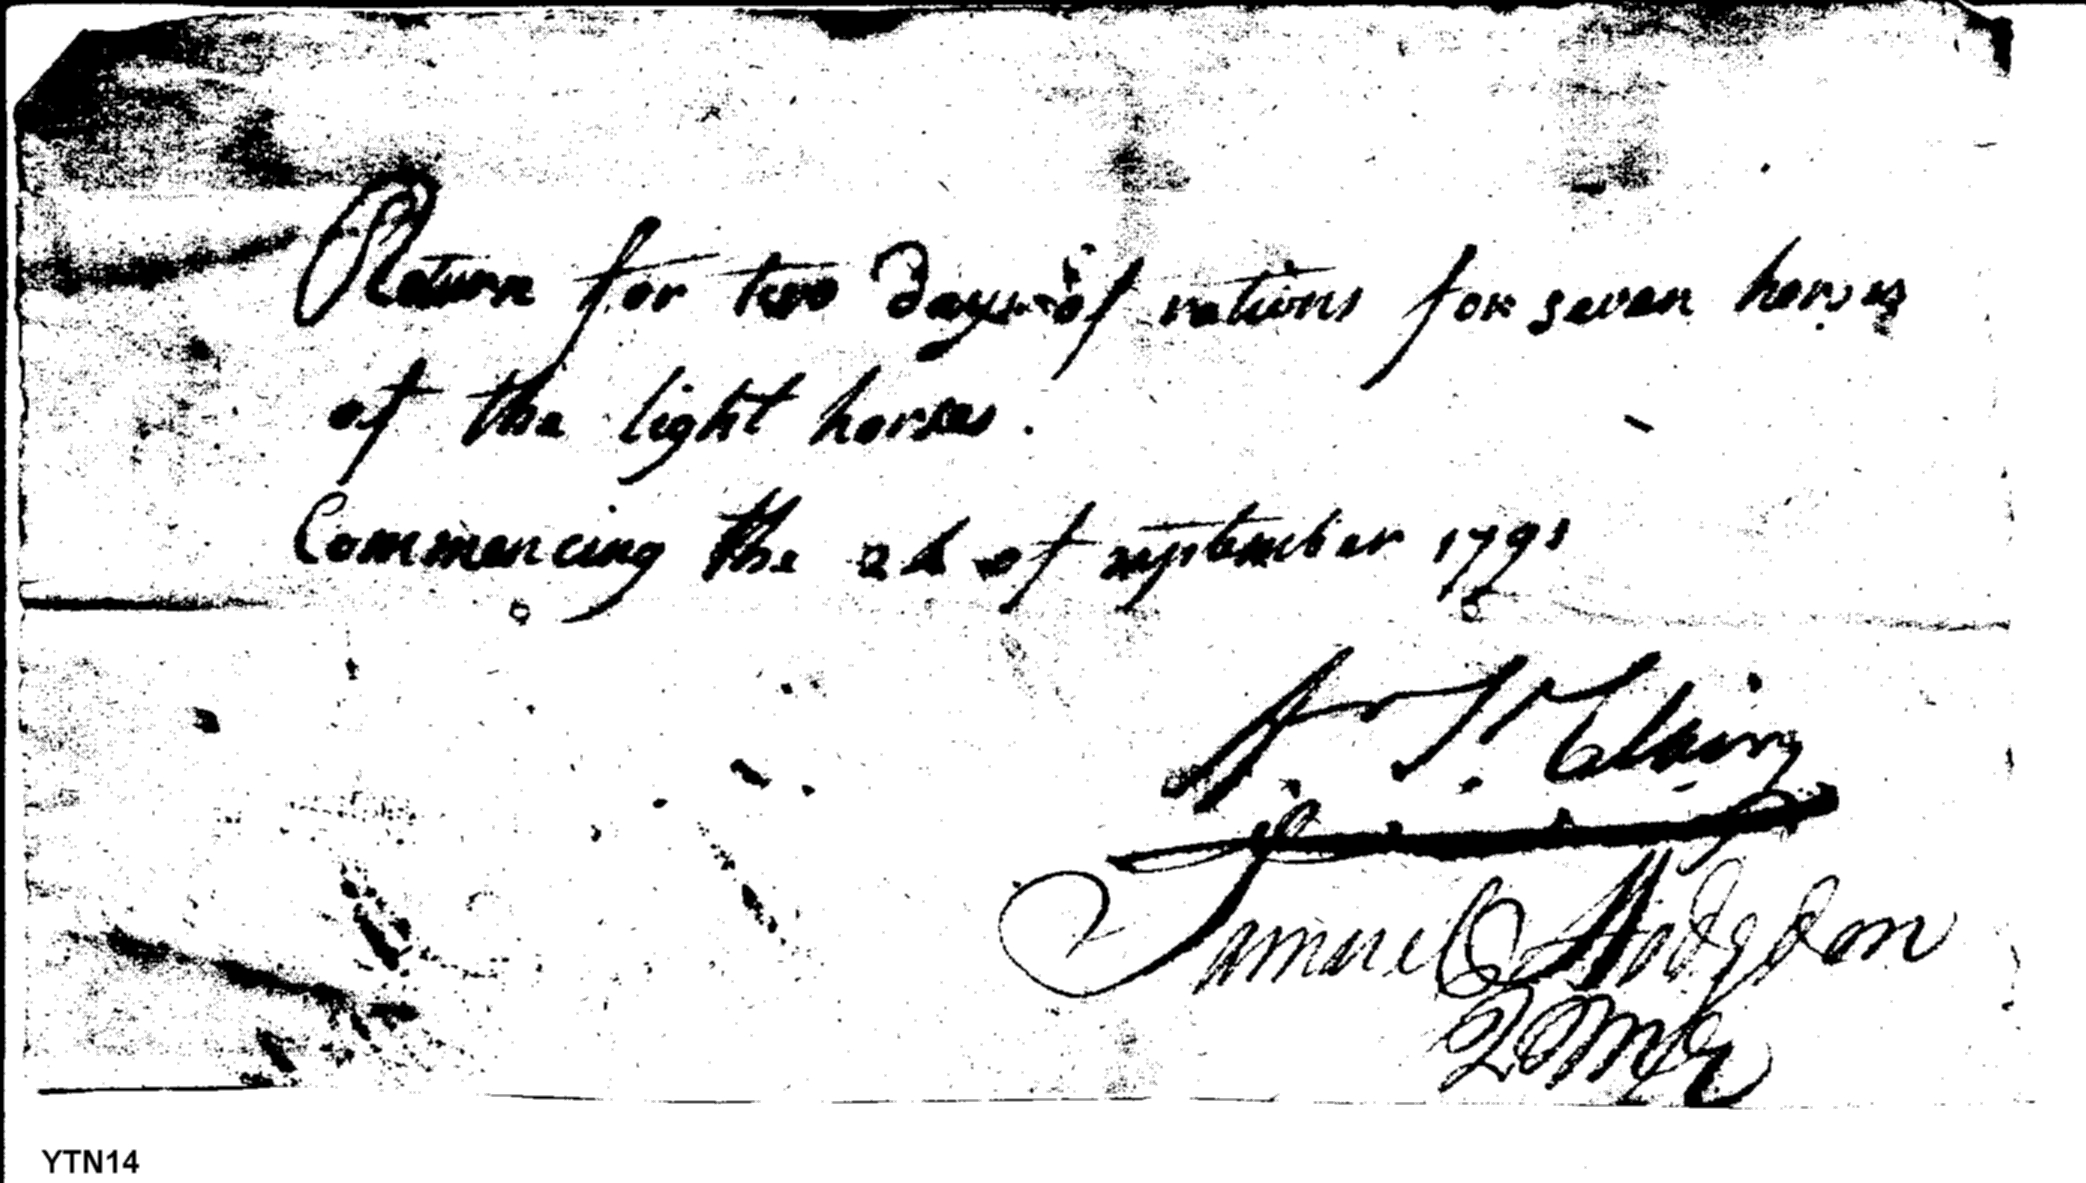 Return for two Days of rations for seven horses
of the light horses.
Commencing the 2d of september 1791
Samuel Hodgdon
QMG
YTN14